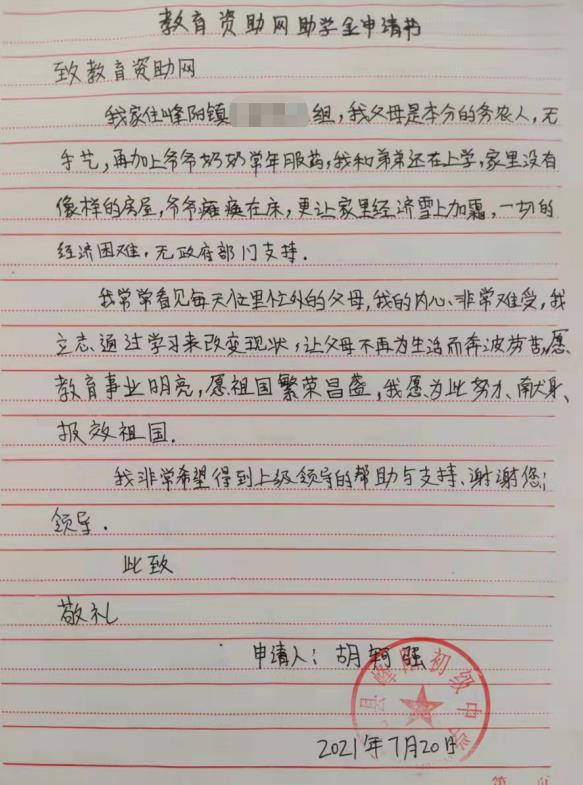 教育资助网助学金申请书
致教育资助网
我家住峰阳镇组,我父母是本分的务农人,无
手艺,再加上爷爷奶奶常年服药,我和弟弟还在上学,家里没有
像样的房屋,爷爷瘫痪在床,更让家里经济雪上加霜,一切的
经济困难,无政府部门支持.
我常常看见每天忙里忙外的父母,我的内心、非常难受,我
立志、通过学习来改变现状,让父母不再为生活而奔波劳苦,愿
教育事业明亮,愿祖国繁荣昌盛,我愿为此努力、献身、
报效祖国.
我非常希望得到上级领导的帮助与支持、谢谢您;
领导.
此致
敬礼
申请人:胡轲强
县峰阳初级中学
2021年7月20日
第 页